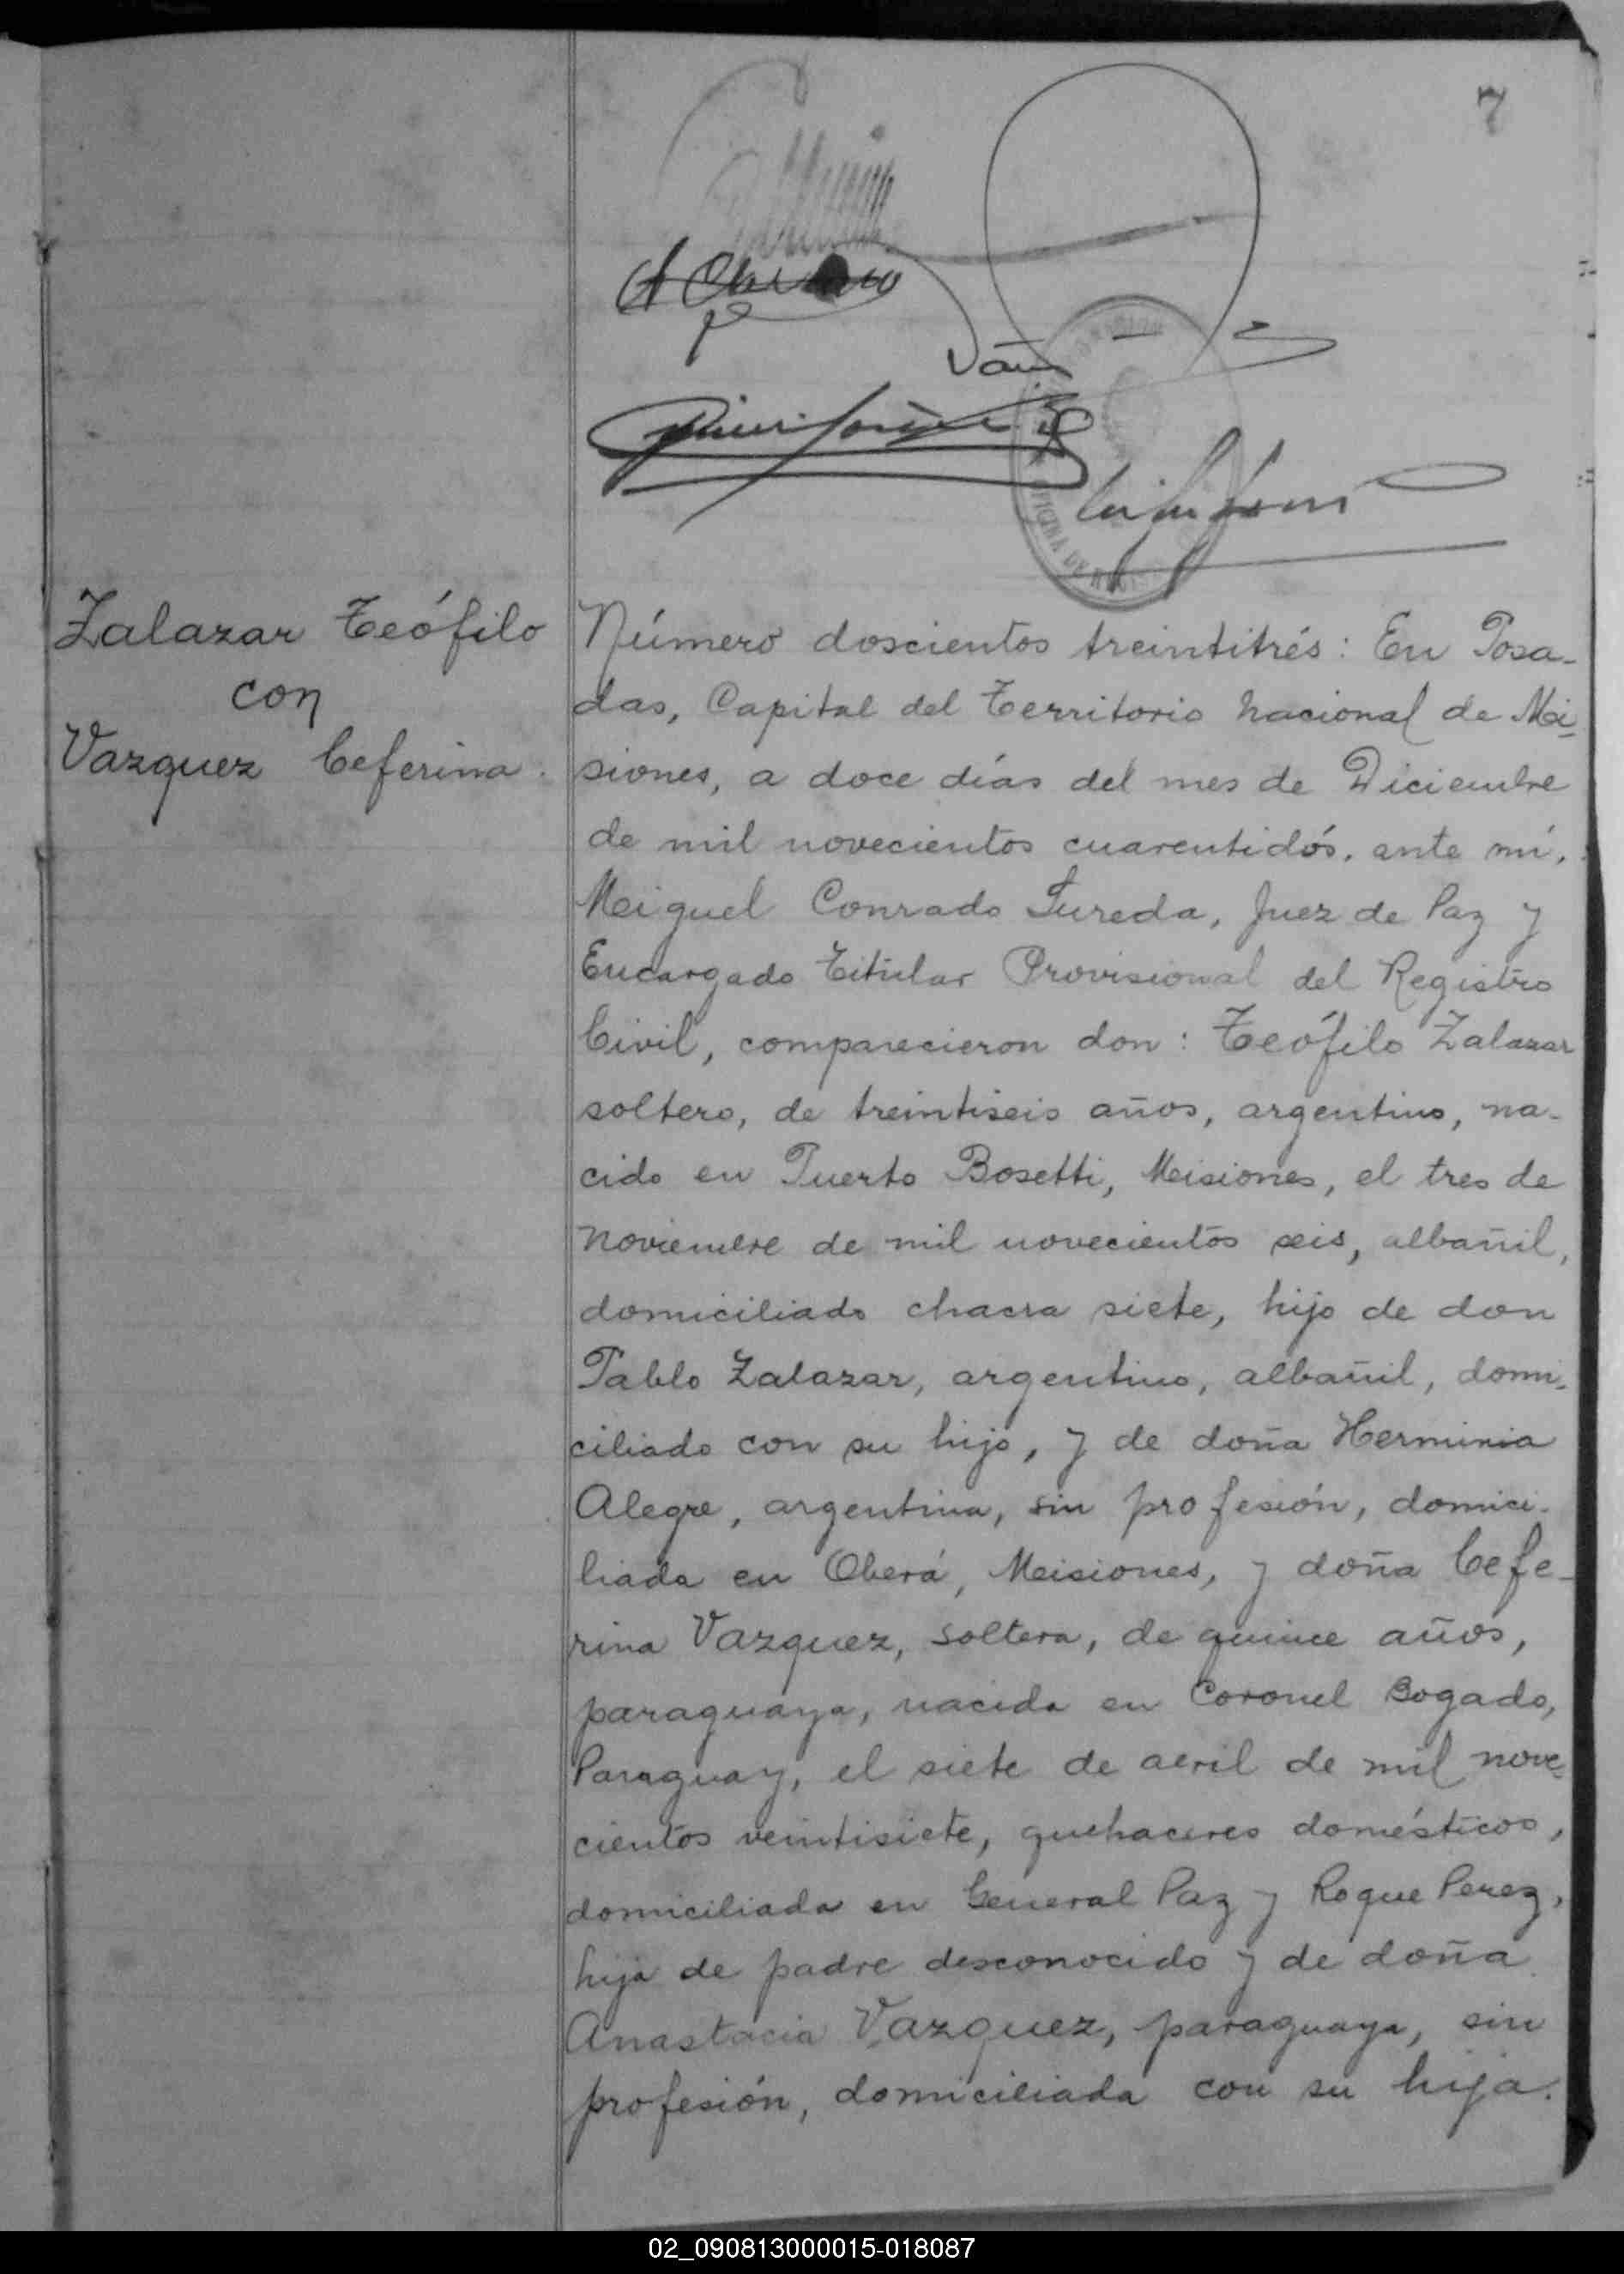 7
OFICINA DE
Zalazar Teófilo
con
Vazquez Ceferina.
Número doscientos treintitrés: En Posa-
das, Capital del Territorio Nacional de Mi-
siones, a doce días del mes de Diciembre
de mil novecientos cuarentidós, ante mí,
Miguel Conrado Sureda, Juez de Paz y
Encargado Titular Provisional del Registro
Civil, comparecieron don: Teófilo Zalazar
soltero, de treintiseis años, argentino, na-
cido en Puerto Bosetti, Misiones, el tres de
Noviembre de mil novecientos seis, albañil,
domiciliado chacra siete, hijo de don
Pablo Zalazar, argentino, albañil, domi-
ciliado con su hijo, y de doña Herminia
Alegre, argentina, sin profesión, domici-
liada en Oberá, Misiones, y doña Cefe-
rina Vazquez, soltera, de quince años,
paraguaya, nacida en Coronel Bogado,
Paraguay, el siete de abril de mil nove-
cientos veintisiete, quehaceres domésticos,
domiciliada en General Paz y Roque Perez,
hija de padre desconocido y de doña
Anastacia Vazquez, paraguaya, sin
profesión, domiciliada con su hija.
02_090813000015-018087